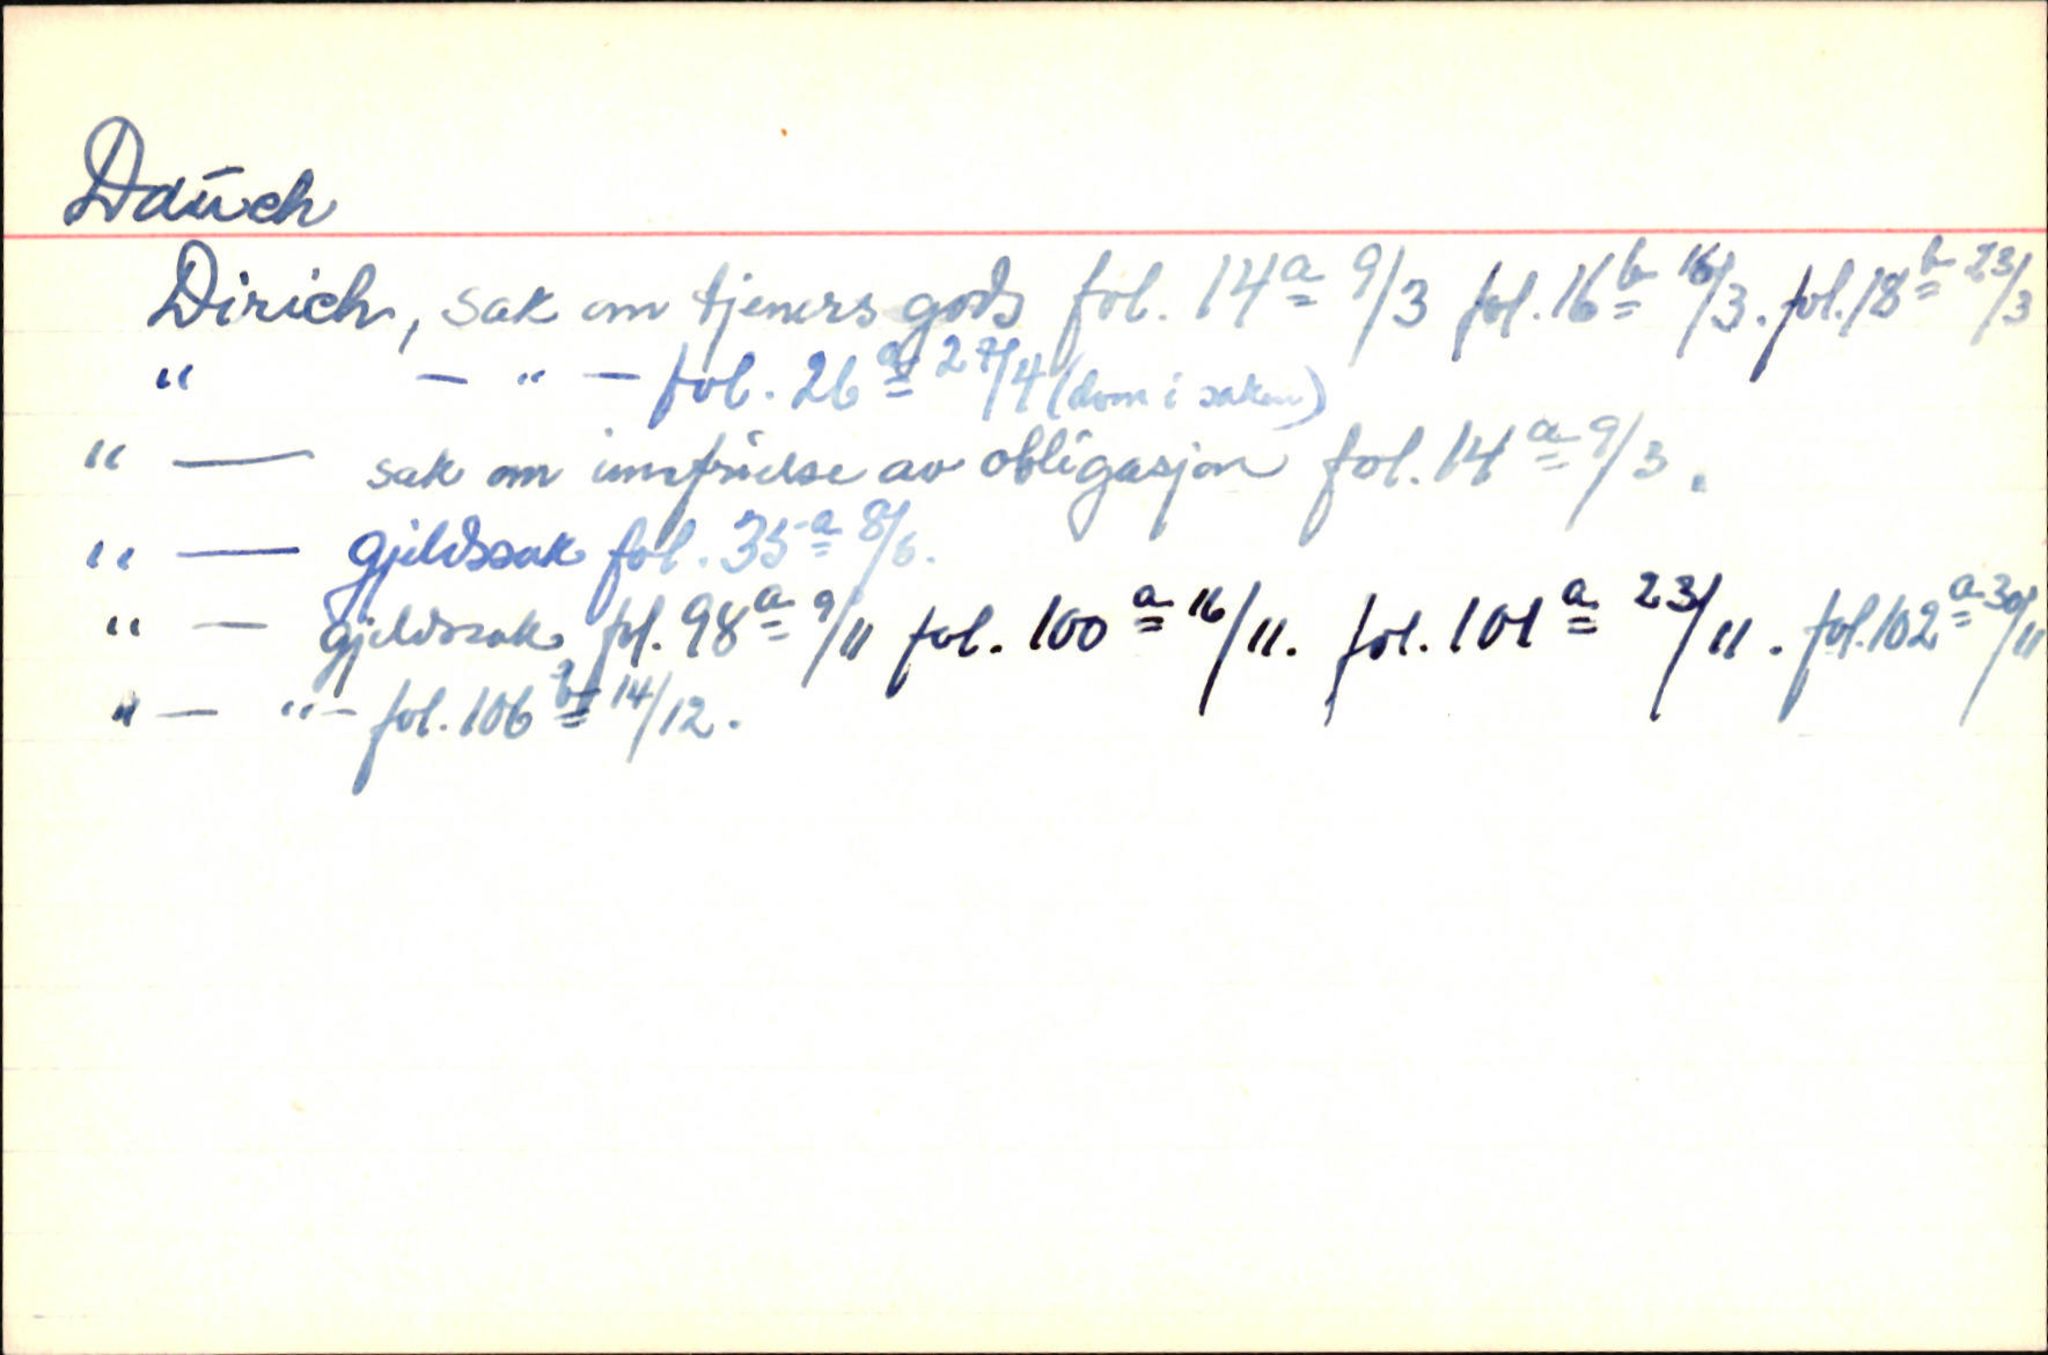 Daūch
Dirich, sak om tjeners gods fol. 14a 9/3 fol. 16b 16/3. fol. 18b 23/3
" — " — fol. 26a 27/4 (dom i saken)
" — sak om innfrielse av obligasjon fol. 14a 9/3.
" — gjeldssak fol. 35a 8/6.
" — gjeldssak fol. 98a 9/11 fol. 100a 16/11. fol. 101a 23/11. fol. 102a 30/11
" — " — fol. 106b 14/12.